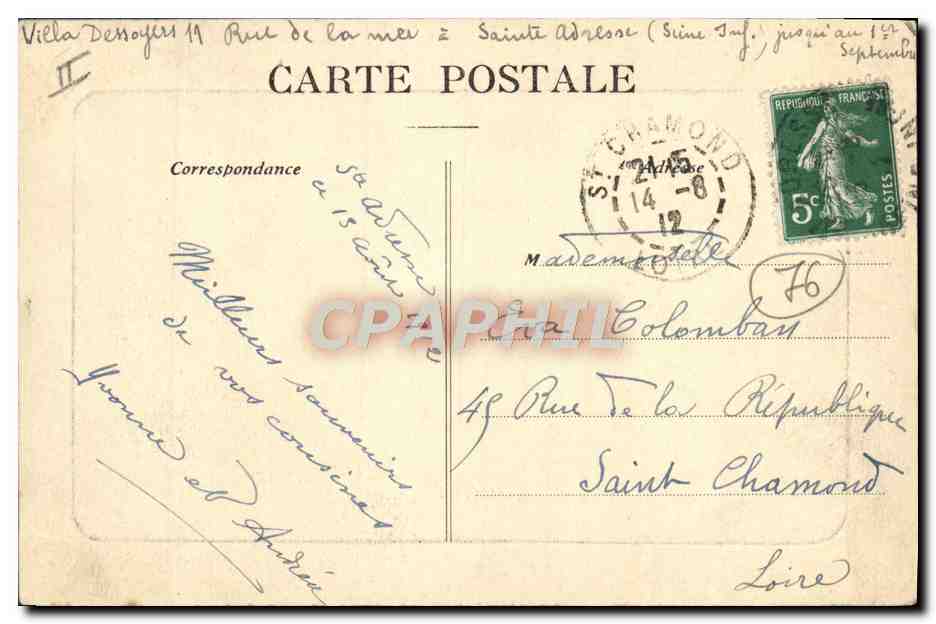 Villa Dessoyers 11 Rue de la mer = Sainte Adresse (Seine Inf.) jusqu'au 1er
Septembre
II
CARTE POSTALE
REPUBLIQUE FRANÇAISE
5c
POSTES
ST CHAMOND
21 15
14 - 8
12
LOIRE
Correspondance
Adresse
Ste Adresse
ce 13 Août 12
Meilleurs souvenirs
de vos cousines
Yvonne et Andrée
Mademoiselle
76
Eva Colomban
45 Rue de la République
Saint Chamond
Loire
CPAPHIL